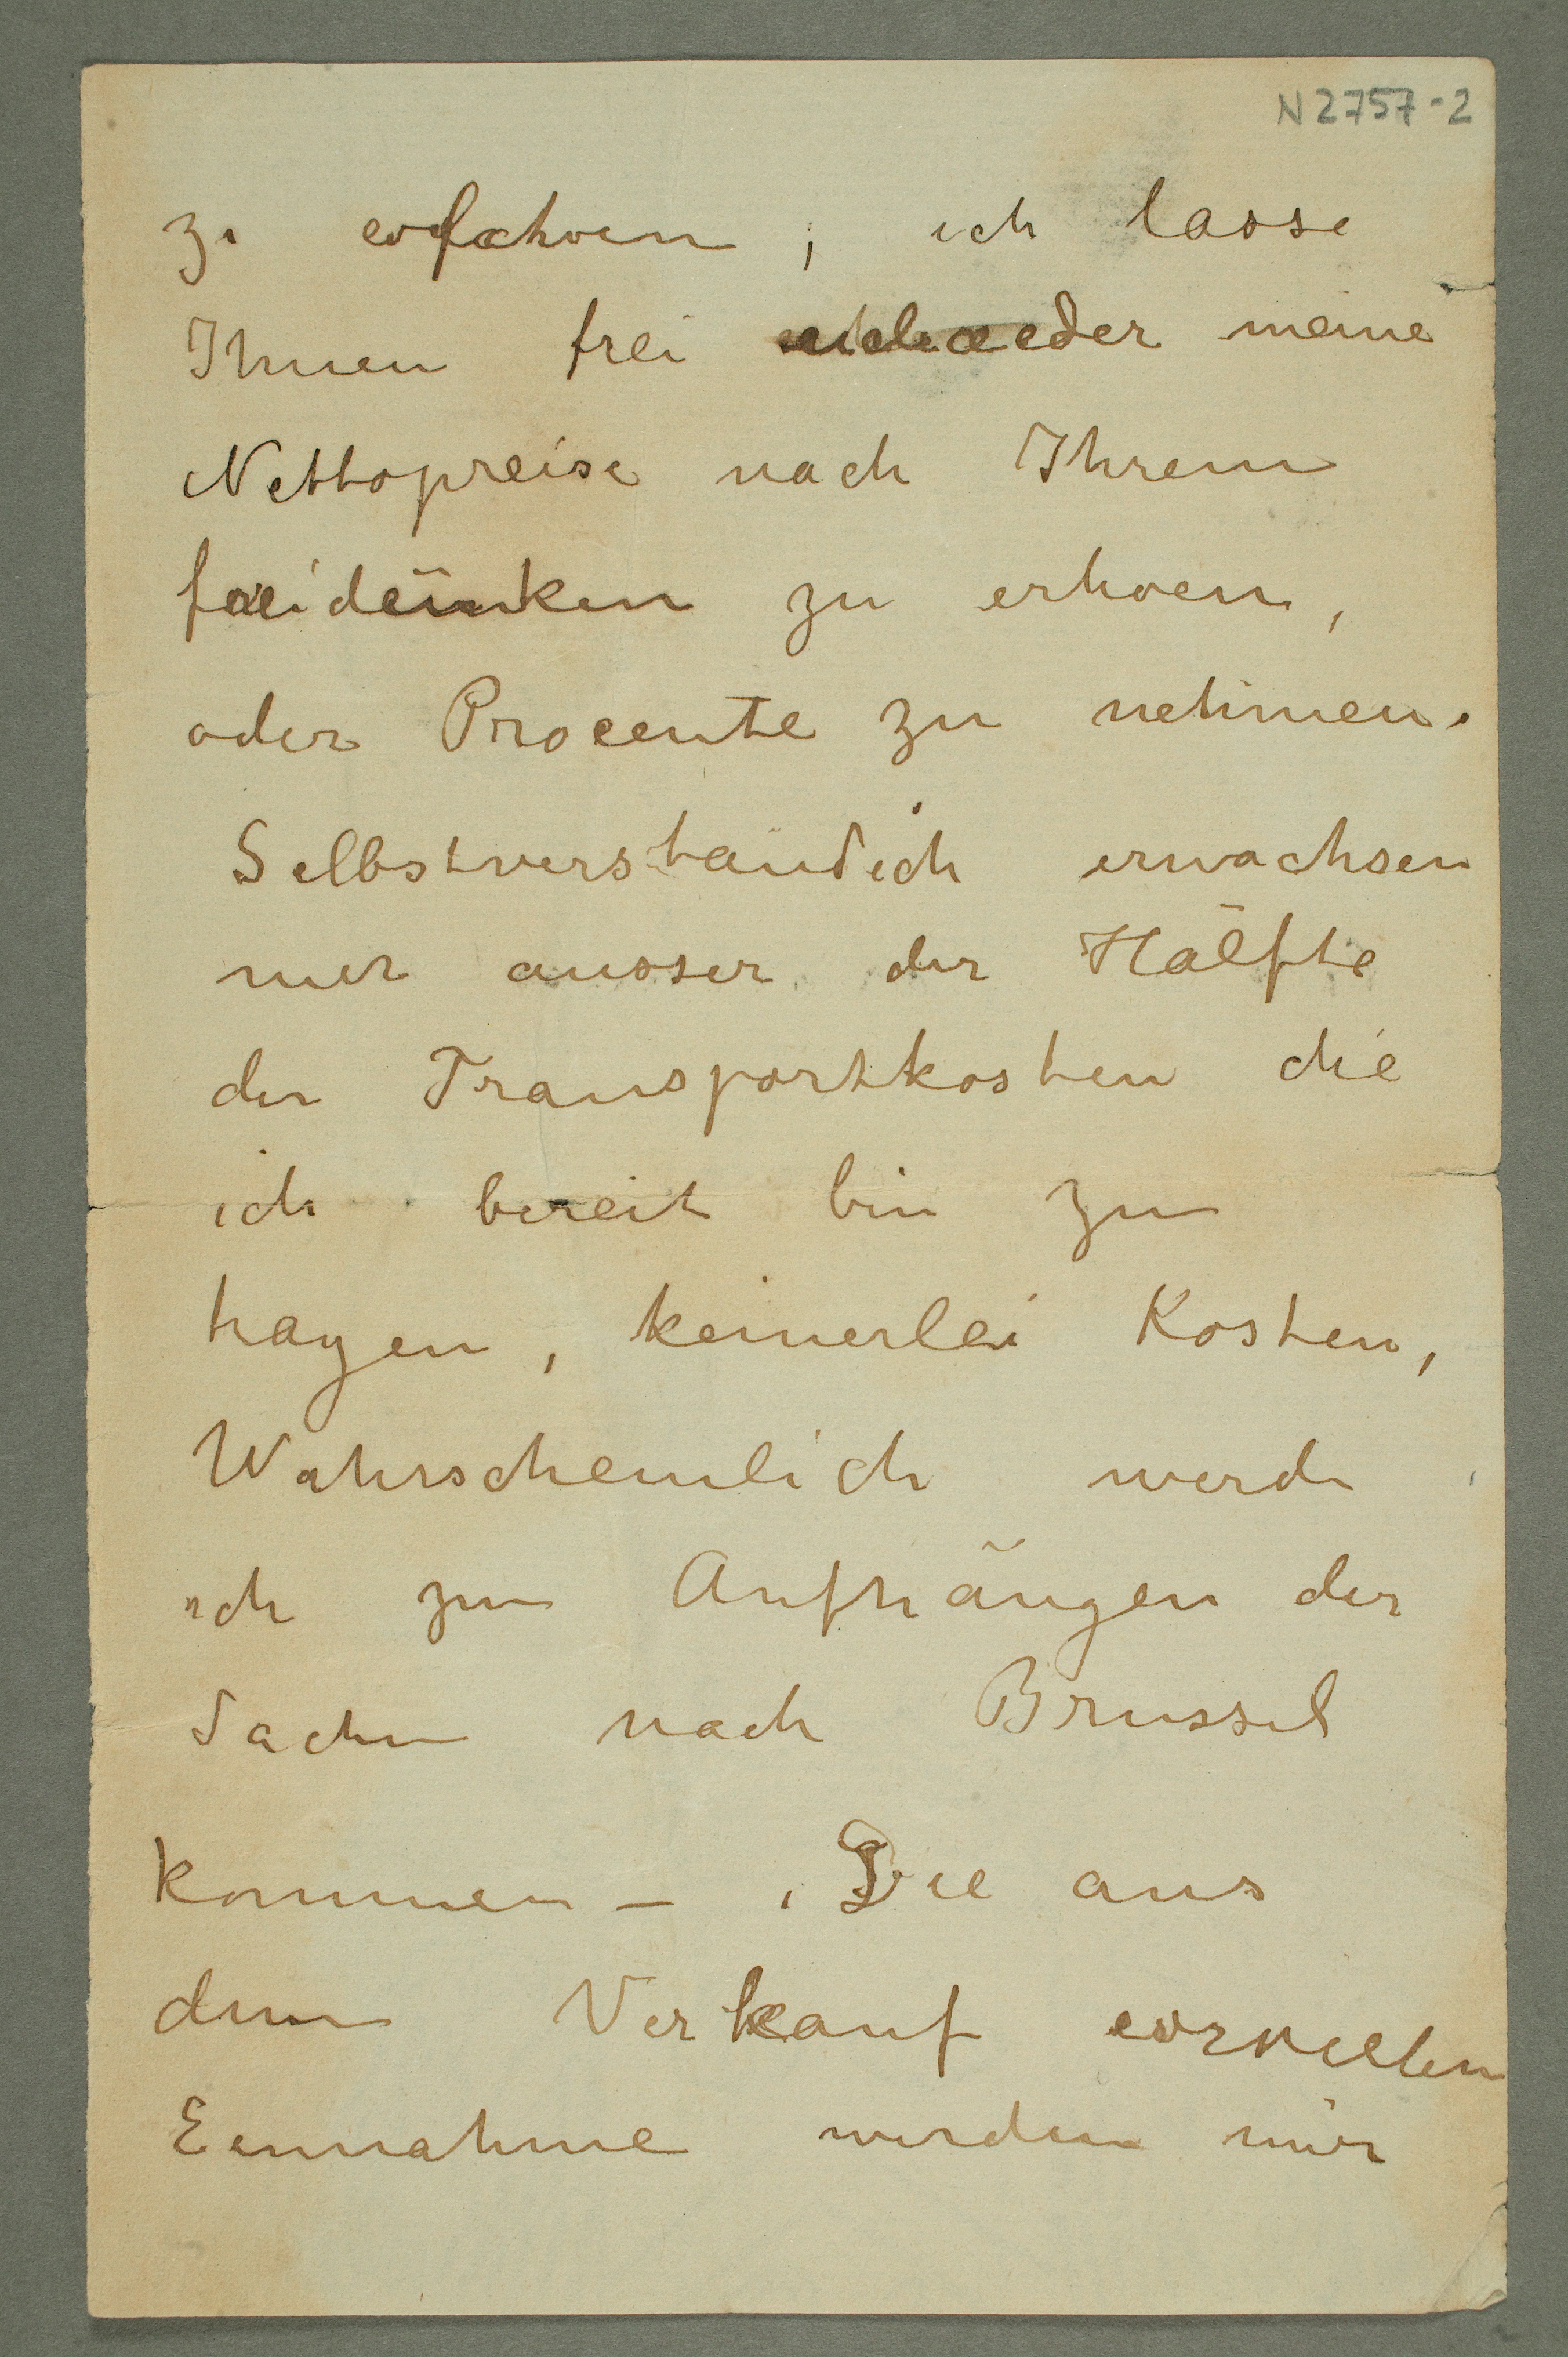 N 2757-2
zu erfahren; ich lasse
Ihnen frei entweder meine
Nettopreise nach Ihrem
zu erhoen,
oder Procente zu nehmen.
Selbstverständich erwachsen
mir ausser der Hälfte
der Transportkosten die
ich bereit bin zu
tragen, keinerlei Kosten,
Wahrscheinlich werde
ich zum Aufhängen der
Sachen nach Brussel
kommen – . Die aus
dem Verkauf
Einnahme werden mir